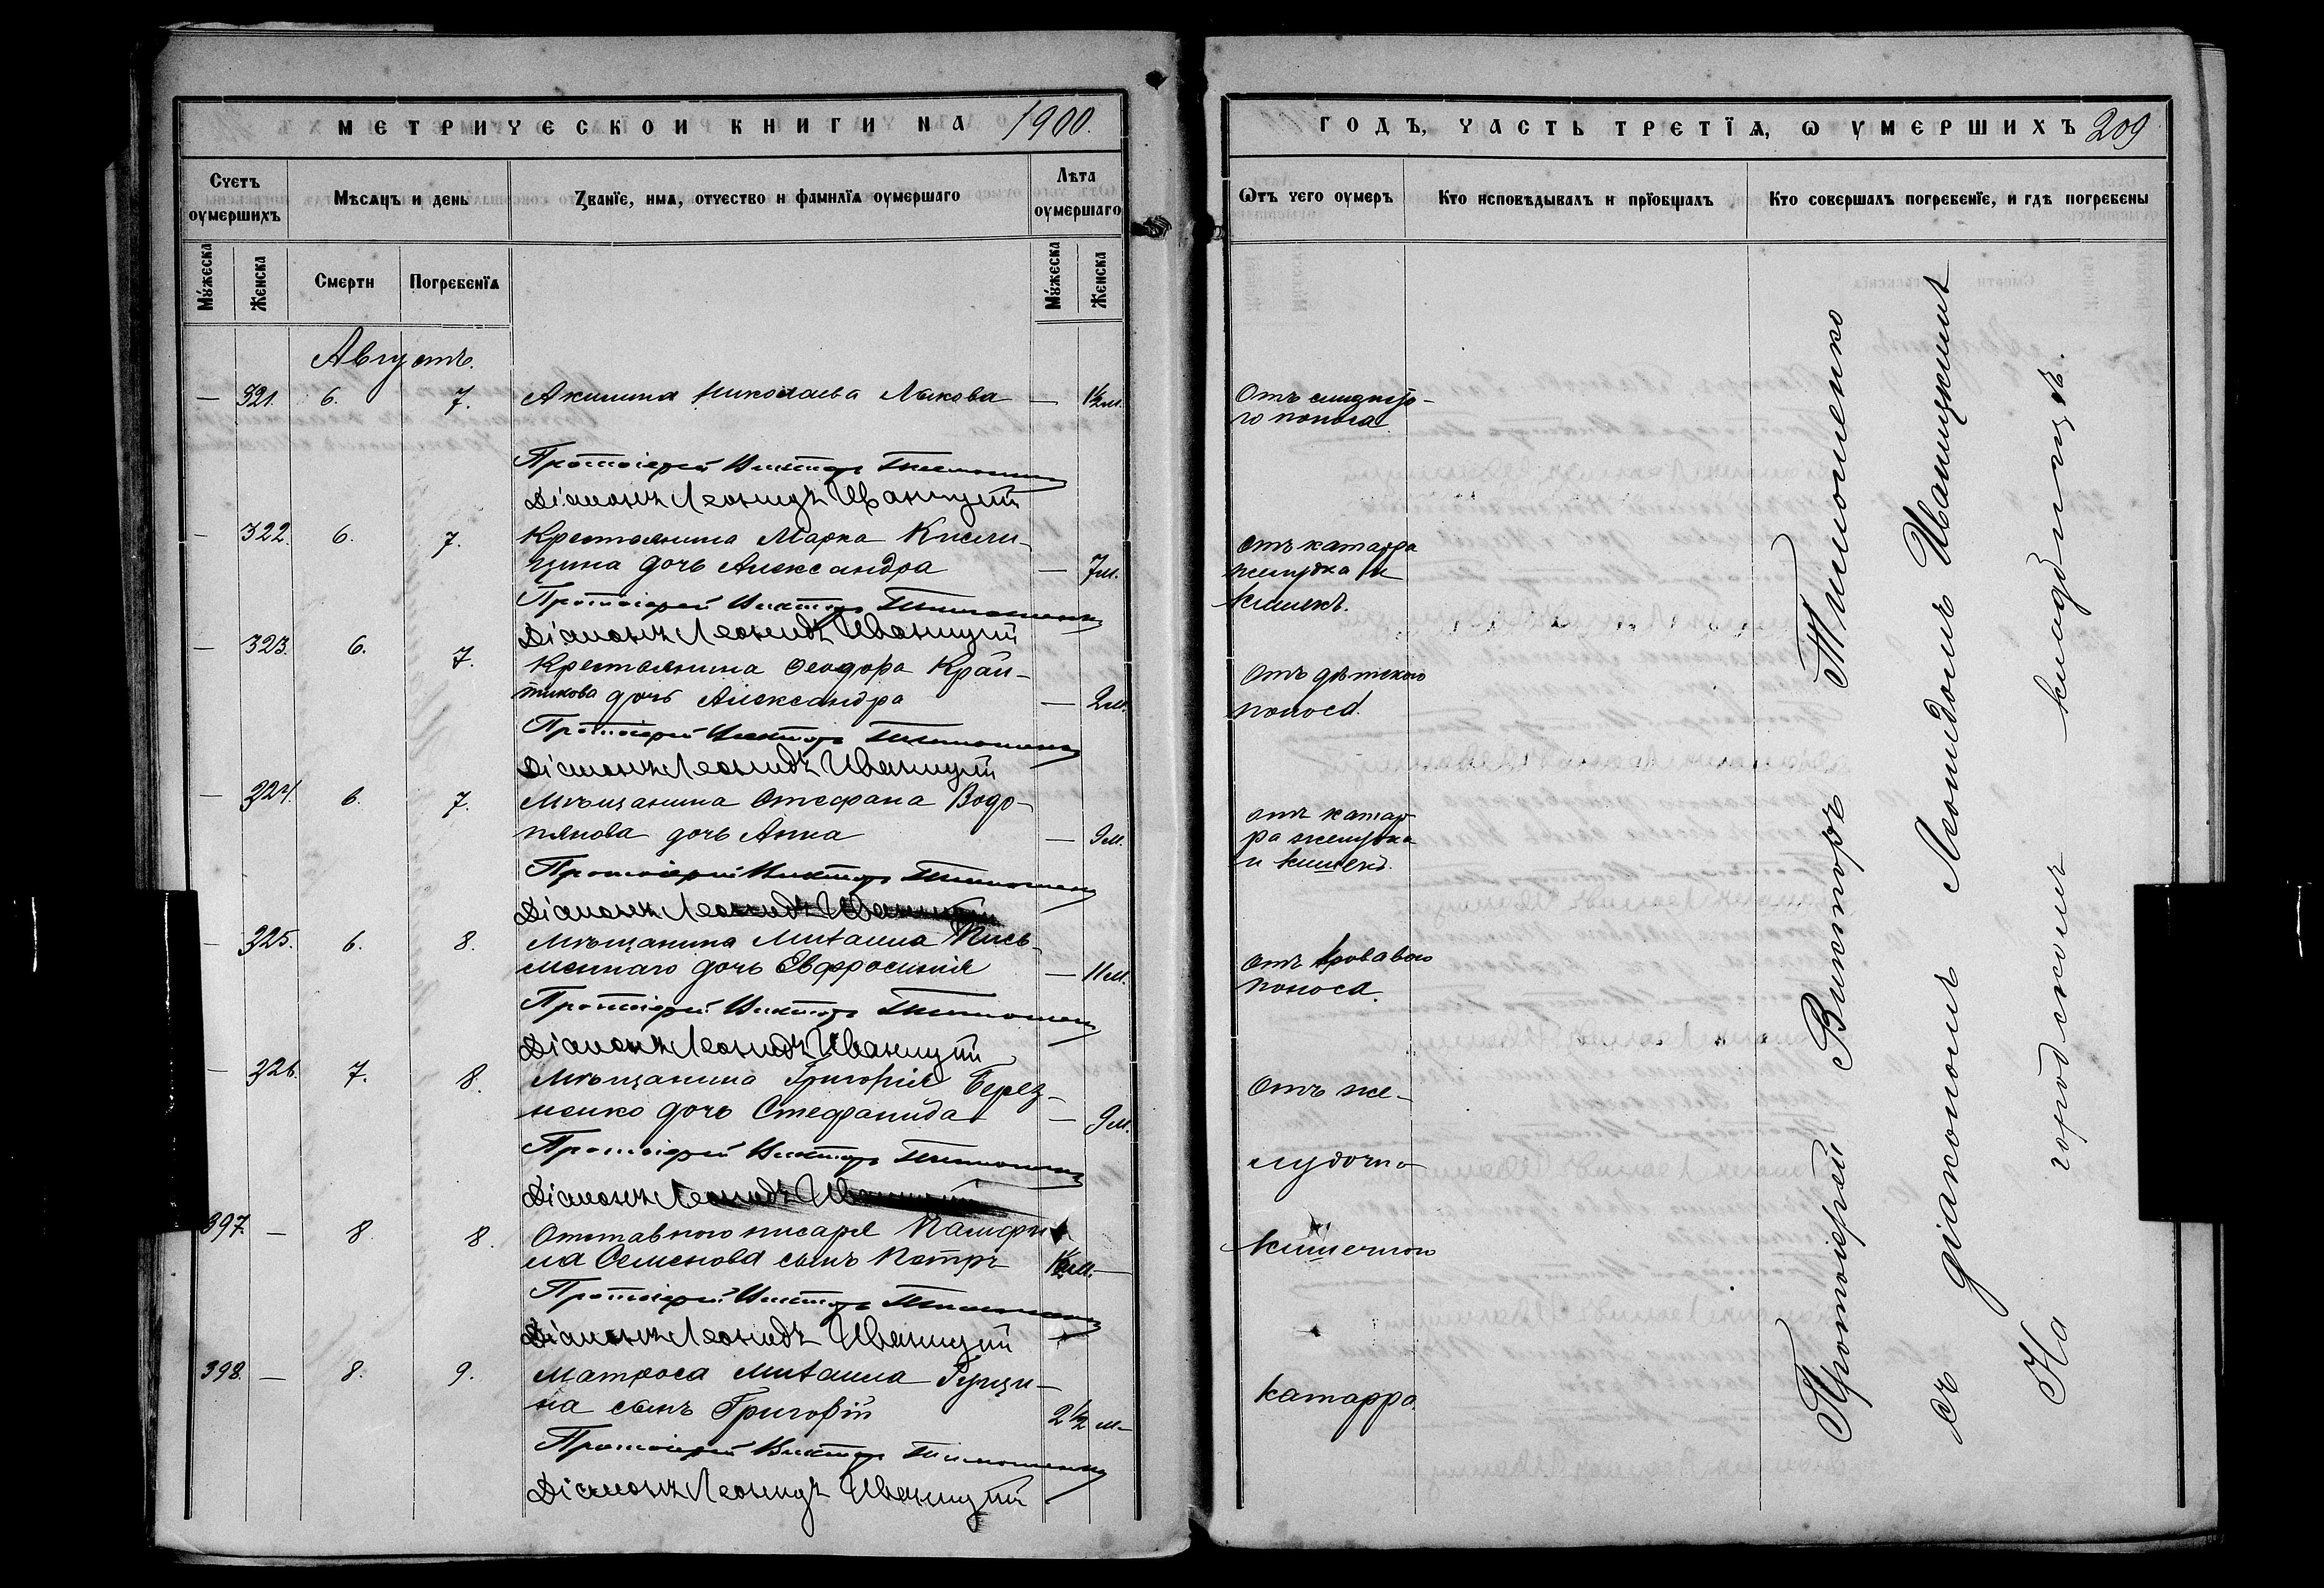 МЕТРИЧЕСКОЙ КНИГИ НА 1900.
Счетъ оумершихъ
Мѣсяцъ и день
Званїе, имя, отчество и фамилїя оумершаго
Лѣта оумершаго
Мꙋжеска
Женска
Смерти
Погребенїя
Мꙋжеска
Женска
Августъ.
— 321. 6. 7. Акилина Николаева Лыкова — 1½ м.
Протоіерей Викторъ Тимошенко
Діаконъ Леонидъ Иваницкій
— 322. 6. 7. Крестьянина Марка Кисли-
цина дочь Александра — 7 м.
Протоіерей Викторъ Тимошенко
Діаконъ Леонидъ Иваницкій
— 323. 6. 7. Крестьянина Ѳеодора Край-
дочь Александра — 2 м.
Протоіерей Викторъ Тимошенко
Діаконъ Леонидъ Иваницкій
— 324. 6. 7. Мѣщанина Стефана Водо-
пянова дочь Анна — 9 м.
Протоіерей Викторъ Тимошенко
Діаконъ Леонидъ Иваницкій
— 325. 6. 8. Мѣщанина Михаила Пись-
меннаго дочь Евфросинія — 11 м.
Протоіерей Викторъ Тимошенко
Діаконъ Леонидъ Иваницкій
— 326. 7. 8. Мѣщанина Григорія Берез-
ненко дочь Стефанида — 9 м.
Протоіерей Викторъ Тимошенко
Діаконъ Леонидъ Иваницкій
397. — 8. 8. Отставного писаря Памфи
ла Семенова сынъ Петръ —
Протоіерей Викторъ Тимошенко
Діаконъ Леонидъ Иваницкій
398. — 8. 9. Матроса Михаила
на сынъ Григорій 2½ м. —
Протоіерей Викторъ Тимошенко
Діаконъ Леонидъ Иваницкій
ГОДЪ, ЧАСТЬ ТРЕТЇѦ, Ѡ УМЕРШИХЪ 209
Ѿтъ чего оумеръ
Кто исповѣдывалъ и прїобщалъ
Кто совершалъ погребенїе, и гдѣ погребены
Отъ
го поноса
отъ катарра
желудка и
кишекъ.
Отъ дѣтскаго
поноса.
отъ катар-
ра желудка
и кишекъ.
Отъ кроваваго
поноса.
Отъ же-
лудочно-
кишечнаго
катарра.
Протоіерей Викторъ Тимошенко
съ діакономъ Леонидомъ Иваницкимъ
На городскомъ кладбищѣ.